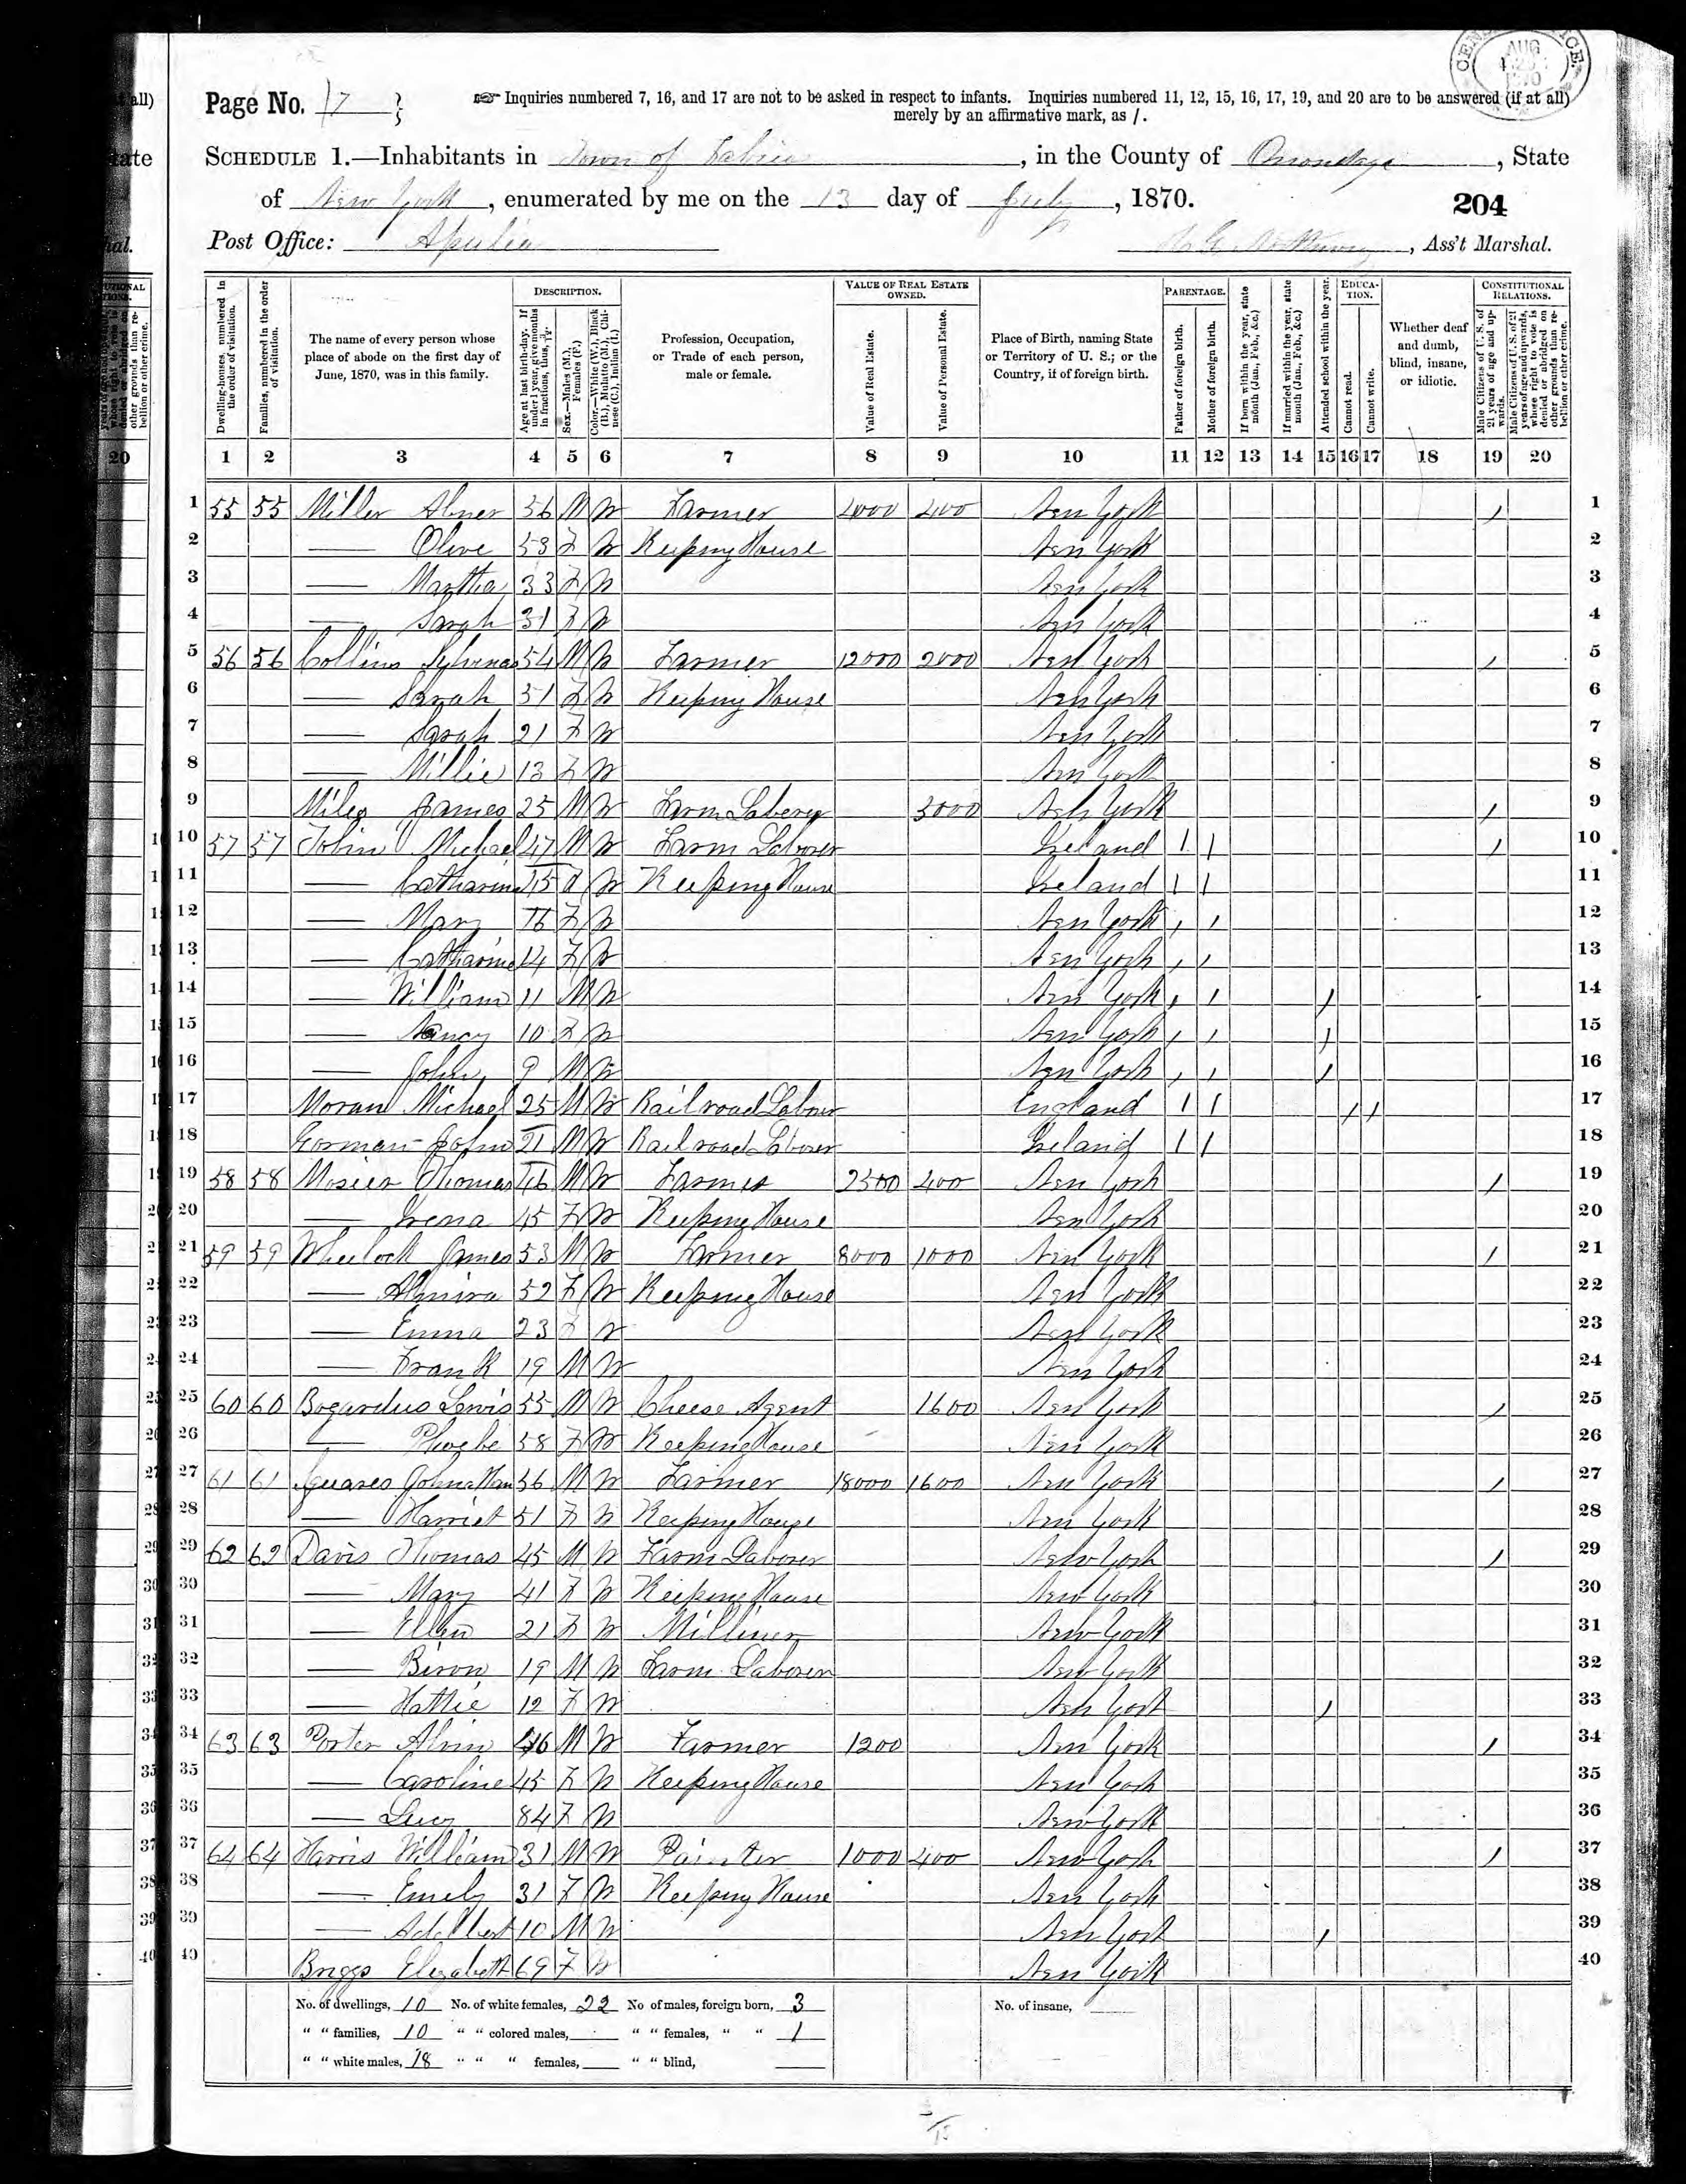 CENSUS OFFICE. AUG 1870
Page No. 17 }
Inquiries numbered 7, 16, and 17 are not to be asked in respect to infants. Inquiries numbered 11, 12, 15, 16, 17, 19, and 20 are to be answered (if at all)
merely by an affirmative mark, as /.
SCHEDULE 1.—Inhabitants in Town of Fabius, in the County of Onondaga, State
of New York, enumerated by me on the 13 day of July, 1870.
204
Post Office: Apulia
, Ass't Marshal.
Dwelling-houses, numbered in the order of visitation.
Families, numbered in the order of visitation.
The name of every person whose place of abode on the first day of June, 1870, was in this family.
DESCRIPTION.
Age at last birth-day. If under 1 year, give months in fractions, thus, 3/12.
Sex.—Males (M.), Females (F.)
Color.—White (W.), Black (B.), Mulatto (M.), Chinese (C.), Indian (I.)
Profession, Occupation, or Trade of each person, male or female.
VALUE OF REAL ESTATE OWNED.
Value of Real Estate.
Value of Personal Estate.
Place of Birth, naming State or Territory of U. S.; or the Country, if of foreign birth.
PARENTAGE.
Father of foreign birth.
Mother of foreign birth.
If born within the year, state month (Jan., Feb., &c.)
If married within the year, state month (Jan., Feb., &c.)
Attended school within the year.
EDUCATION.
Cannot read.
Cannot write.
Whether deaf and dumb, blind, insane, or idiotic.
CONSTITUTIONAL RELATIONS.
Male Citizens of U. S. of 21 years of age and upwards.
Male Citizens of U. S. of 21 years of age and upwards, whose right to vote is denied or abridged on other grounds than rebellion or other crime.
1 2 3 4 5 6 7 8 9 10 11 12 13 14 15 16 17 18 19 20
1 55 55 Miller Abner 56 M W Farmer 4000 400 New York / 1
2 — Olive 53 F W Keeping House New York 2
3 — Martha 33 F W New York 3
4 — Sarah 31 F W New York 4
5 56 56 Collins Sylvenas 54 M W Farmer 12000 2000 New York / 5
6 — Sarah 51 F W Keeping House New York 6
7 — Sarah 21 F W New York 7
8 — Millie 13 F W New York 8
9 Miles James 25 M W Farm Laborer 3000 New York / 9
10 57 57 Tobin Michael 47 M W Farm Laborer Ireland / / / 10
11 — Catharine 45 W Keeping House Ireland / / 11
12 — Mary 16 F W New York / / 12
13 — Catharine 14 F W New York / / 13
14 — William 11 M W New York / / / 14
15 — Nancy 10 F W New York / / / 15
16 — John 9 M W New York / / / 16
17 Moran Michael 25 M W Railroad Labour England / / / / 17
18 Gorman John 21 M W Railroad Laborer Ireland / / 18
19 58 58 Mosier Thomas 46 M W Farmer 2500 400 New York / 19
20 — Irena 45 F W Keeping House New York 20
21 59 59 Wheelock James 53 M W Farmer 8000 1000 New York / 21
22 — Almira 52 F W Keeping House New York 22
23 — Emma 23 F W New York 23
24 — Frank 19 M W New York 24
25 60 60 Bogardus Lewis 55 M W Cheese Agent 1600 New York / 25
26 — Phoebe 58 F W Keeping House New York 26
27 61 61 Squares Johnathan 56 M W Farmer 18000 1600 New York / 27
28 — Harriet 51 F W Keeping House New York 28
29 62 62 Davis Thomas 45 M W Farm Laborer New York / 29
30 — Mary 41 F W Keeping House New York 30
31 — Ellen 21 F W Milliner New York 31
32 — Biron 19 M W Farm Laborer New York 32
33 — Hattie 12 F W New York / 33
34 63 63 Porter Alvin 46 M W Farmer 1200 New York / 34
35 — Caroline 45 F W Keeping House New York 35
36 — Lucy 84 F W New York 36
37 64 64 Harris William 31 M W Painter 1000 400 New York / 37
38 — Emely 31 F W Keeping House New York 38
39 — Adelbert 10 M W New York / 39
40 Briggs Elizabeth 69 F W New York 40
No. of dwellings, 10 No. of white females, 22 No of males, foreign born, 3 No. of insane,
" " families, 10 " " colored males, " " females, " " 1
" " white males, 18 " " " females, " " blind,